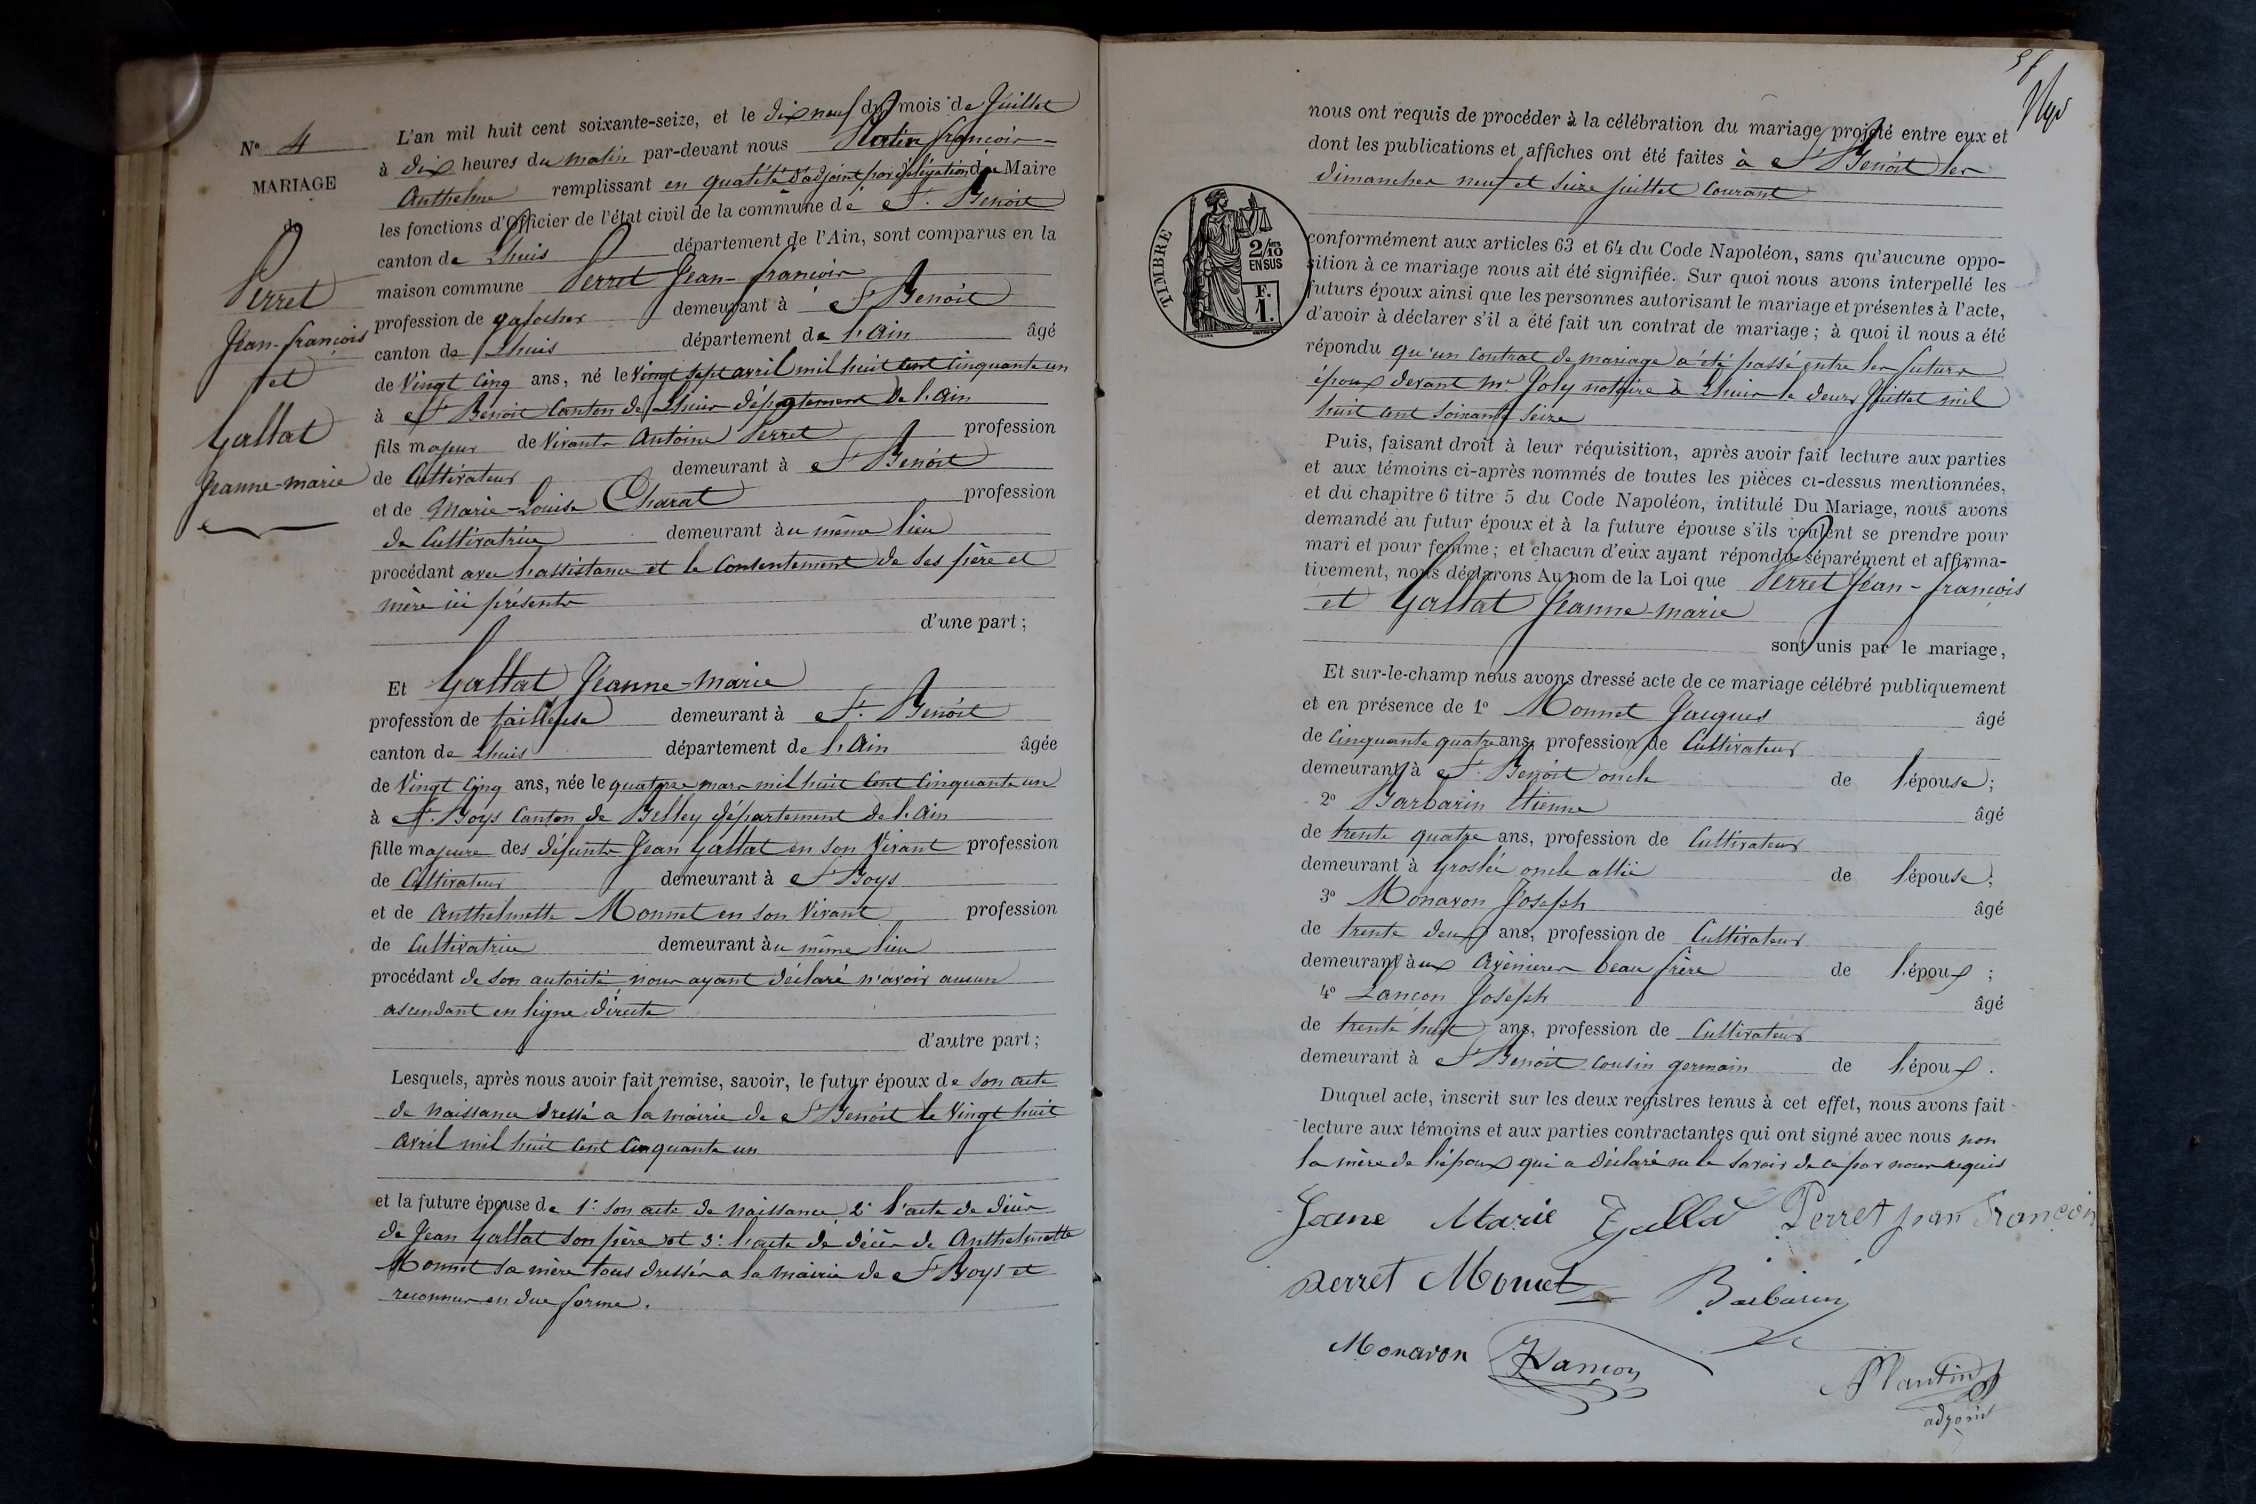 N° 4
MARIAGE
de
Perret
Jean-françois
et
Gallat
Jeanne-marie
L'an mil huit cent soixante-seize, et le dix neuf du mois de Juillet
à dix heures du matin par-devant nous françois
Anthelme remplissant en qualité d'adjoint par délégation de Maire
les fonctions d'Officier de l'état civil de la commune de St. Benoit
canton de Lhuis département de l'Ain, sont comparus en la
maison commune Perret Jean-françois
profession de demeurant à St Benoit
canton de Lhuis département de l'Ain âgé
de Vingt Cinq ans, né le Vingt Sept avril mil huit Cent Cinquante un
à St Benoit Canton de Lhuis département de l'Ain
fils majeur de Vivants Antoine Perret profession
de Cultivateur demeurant à St Benoit
et de Marie-Louise Charat profession
de Cultivatrice demeurant àu même lieu
procédant avec l'assistance et le Consentement de ses père et
mère ici présents
d'une part ;
Et Gallat Jeanne-marie
profession de tailleuse demeurant à St. Benoit
canton de Lhuis département de l'Ain âgée
de Vingt Cinq ans, née le quatorze mars mil huit Cent Cinquante un
à St. Boys Canton de Belley département de l'Ain
fille majeure des défunts Jean Gallat en son Vivant profession
de Cultivateur demeurant à St Boys
et de Anthelmette Monnet en son Vivant profession
de Cultivatrice demeurant àu même lieu
procédant de son autorité nous ayant déclaré n'avoir aucun
ascendant en ligne directe
d'autre part ;
Lesquels, après nous avoir fait remise, savoir, le futur époux de son acte
de Naissance dressé a la mairie de St Benoit le Vingt huit
Avril mil huit Cent Cinquante un
et la future épouse de 1° son acte de Naissance 2° l'acte de décès
de Jean Gallat son père et 3° l'acte de décès de Anthelmette
Monnet sa mère tous dressés a la mairie de St Boys et
reconnus en due forme.
nous ont requis de procéder à la célébration du mariage projeté entre eux et
dont les publications et affiches ont été faites à St Benoit les
dimanches neuf et Seize juillet Courant
TIMBRE
2/10
EN SUS
F.
1.
conformément aux articles 63 et 64 du Code Napoléon, sans qu'aucune oppo-
sition à ce mariage nous ait été signifiée. Sur quoi nous avons interpellé les
futurs époux ainsi que les personnes autorisant le mariage et présentes à l'acte,
d'avoir à déclarer s'il a été fait un contrat de mariage ; à quoi il nous a été
répondu qu'un Contrat de mariage a été passé entre les futurs
époux devant Mr. Joly notaire à Lhuis le deux Juillet mil
huit Cent Soixante Seize
Puis, faisant droit à leur réquisition, après avoir fait lecture aux parties
et aux témoins ci-après nommés de toutes les pièces ci-dessus mentionnées,
et du chapitre 6 titre 5 du Code Napoléon, intitulé Du Mariage, nous avons
demandé au futur époux et à la future épouse s'ils veulent se prendre pour
mari et pour femme ; et chacun d'eux ayant répondu séparément et affirma-
tivement, nous déclarons Au nom de la Loi que Perret Jean-françois
et Gallat Jeanne-marie
sont unis par le mariage,
Et sur-le-champ nous avons dressé acte de ce mariage célébré publiquement
et en présence de 1° Monnet Jacques âgé
de Cinquante quatre ans, profession de Cultivateur
demeurant à St. Benoit oncle de l'épouse ;
2° Barbarin Etienne âgé
de trente quatre ans, profession de Cultivateur
demeurant à Groslée oncle allié de l'épouse ;
3° Monavon Joseph âgé
de trente deux ans, profession de Cultivateur
demeurant àux Avenieres beau frère de l'époux ;
4° Lançon Joseph âgé
de trente huit ans, profession de Cultivateur
demeurant à St Benoit Cousin germain de l'époux .
Duquel acte, inscrit sur les deux registres tenus à cet effet, nous avons fait
lecture aux témoins et aux parties contractantes qui ont signé avec nous non
la mère de l'époux qui a déclaré ne le Savoir de ce par nous requis
Jeane Marie Galla Perret jean François
perret Monnet Barbarin
Monavon Lançon
Plantin
adjoint